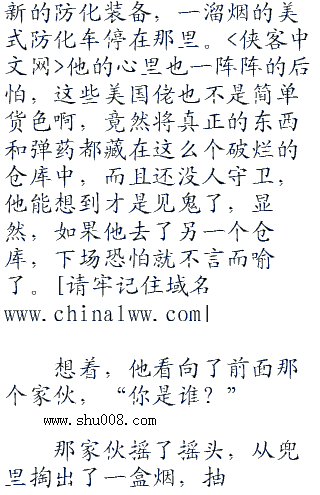 新的防化装备，一溜烟的美
式防化车停在那里。<侠客中
文网>他的心里也一阵阵的后
怕，这些美国佬也不是简单
货色啊，竟然将真正的东西
和弹药都藏在这么个破烂的
仓库中，而且还没人守卫，
他能想到才是见鬼了，显
然，如果他去了另一个仓
库，下场恐怕就不言而喻
了。[请牢记住域名
www.china1ww.com|
想着，他看向了前面那
个家伙，“你是谁？”
www.shu008.com
那家伙摇了摇头，从兜
里掏出了一盒烟，抽